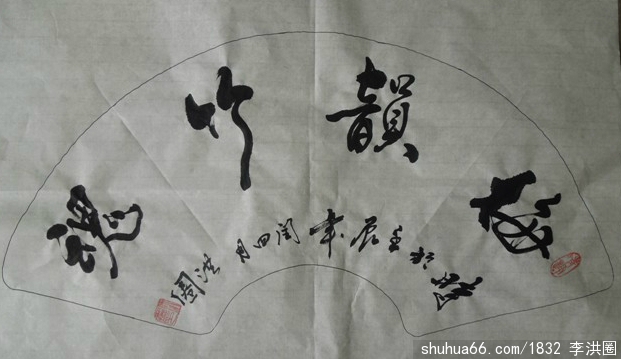 梅韻竹魂
於壬辰年閏四月 洪圈
shuhua66.com/1832 李洪圈